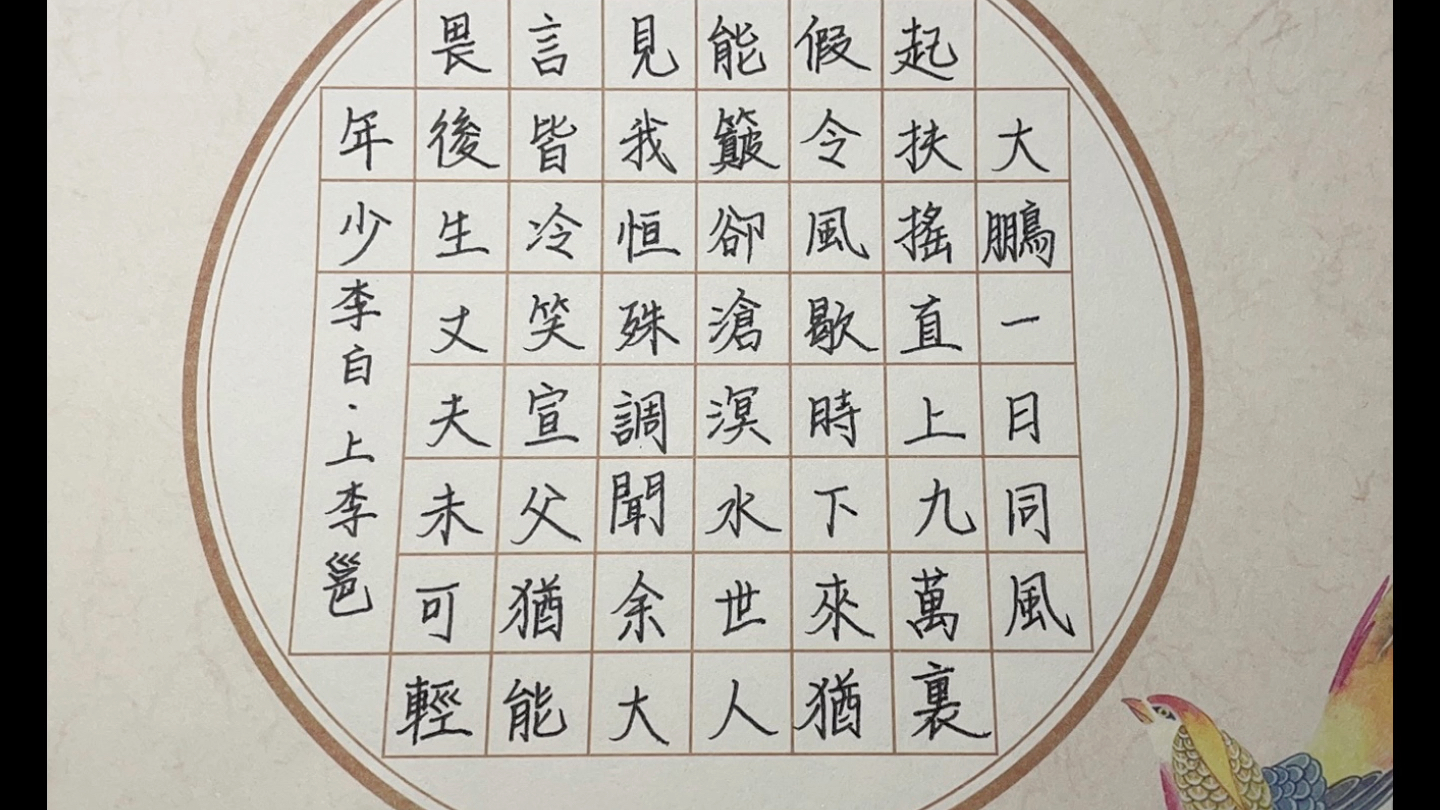 大鵬一日同風
起扶搖直上九萬裏
假令風歇時下來猶
能簸卻滄溟水世人
見我恒殊調聞余大
言皆冷笑宣父猶能
畏後生丈夫未可輕
年少李白·上李邕